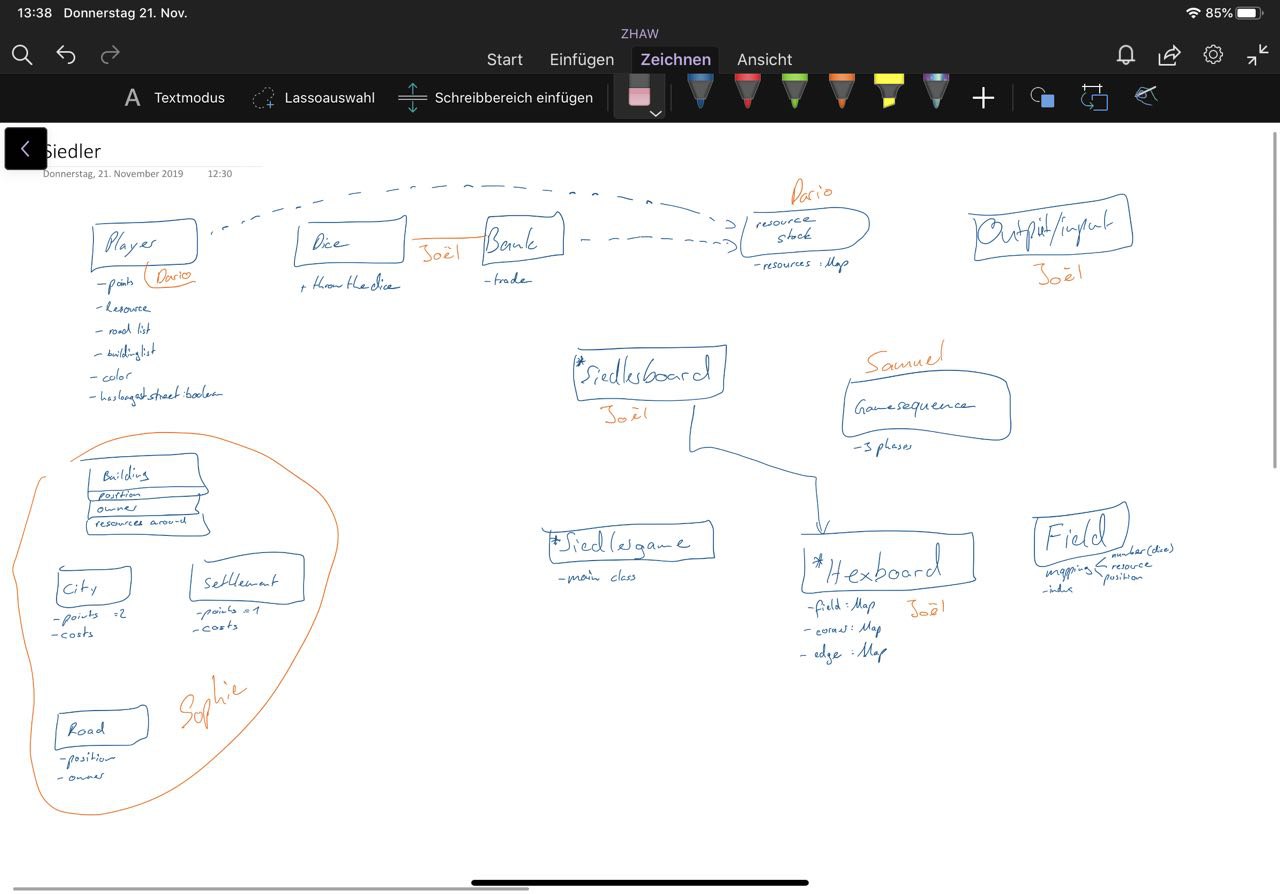 13:38 Donnerstag 21. Nov.
85%
ZHAW
Start Einfügen Zeichnen Ansicht
A Textmodus Lassoauswahl Schreibbereich einfügen
Siedler
Donnerstag, 21. November 2019 12:30
Player
Dario
- points
- Resource
- road list
- buildinglist
- color
- haslongeststreet:boolean
Dice
+ throw the dice
Joël
Bank
- trade
Dario
resource
stock
- resources : Map
Output/input
Joël
*Siedlerboard
Joël
Samuel
Gamesequence
- 3 phases
Building
position
owner
resources around
City
- points =2
- costs
Settlement
- points =1
- costs
Sophie
Road
- position
- owner
*Siedlergame
- main class
*Hexboard
- field : Map
Joël
- corner : Map
- edge : Map
Field
mapping
number (dice)
resource
position